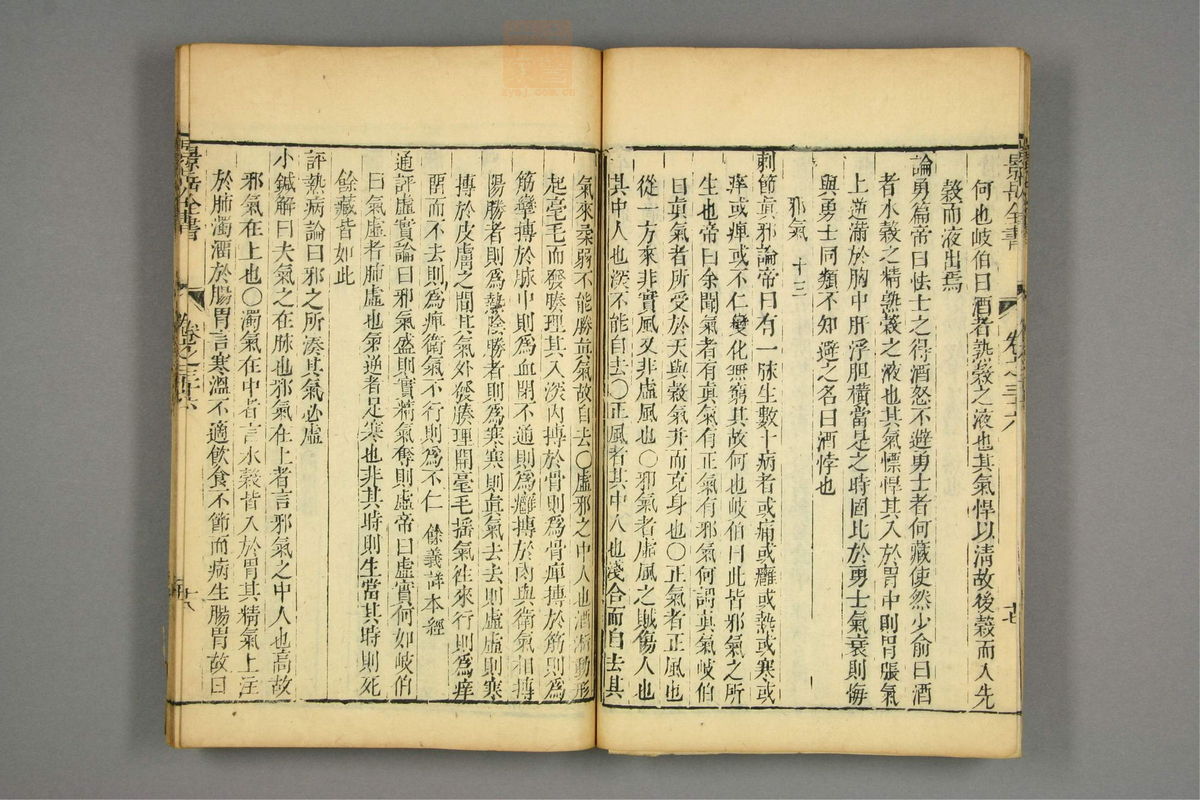 景岳全書
卷之三十六
何也岐伯曰酒者熟穀之液也其氣悍以清故後穀而入先
穀而液出焉
論勇篇帝曰怯士之得酒怒不避勇士者何藏使然少俞曰酒
者水穀之精熟穀之液也其氣慓悍其入於胃中則胃脹氣
上逆滿於胸中肝浮胆橫當是之時固比於勇士氣衰則悔
與勇士同類不知避之名曰酒悖也
邪氣 十三
刺節真邪論帝曰有一脉生數十病者或痛或癰或熱或寒或
痒或痺或不仁變化無窮其故何也岐伯曰此皆邪氣之所
生也帝曰余聞氣者有真氣有正氣有邪氣何謂真氣岐伯
曰眞氣者所受於天與穀氣并而克身也○正氣者正風也
從一方來非實風又非虛風也○邪氣者虛風之賊傷人也
其中人也深不能自去○正風者其中人也淺合而自去其
氣來柔弱不能勝眞氣故自去○虛邪之中人也洒淅動形
起毫毛而發腠理其入深内搏於骨則爲骨痺搏於筋則爲
筋攣搏於脉中則爲血閉不通則爲癰搏於肉與衛氣相搏
陽勝者則爲熱陰勝者則爲寒寒則眞氣去去則虛虛則寒
搏於皮膚之間其氣外發腠理開毫毛摇氣徃來行則爲痒
畱而不去則爲痺衛氣不行則爲不仁 餘義詳本經
通評虛實論曰邪氣盛則實精氣奪則虛帝曰虛實何如岐伯
曰氣虛者肺虛也氣逆者足寒也非其時則生當其時則死
餘藏皆如此
評熱病論曰邪之所湊其氣必虛
小鍼解曰夫氣之在脉也邪氣在上者言邪氣之中人也高故
邪氣在上也○濁氣在中者言水穀皆入於胃其精氣上注
於肺濁溜於腸胃言寒溫不適飲食不節而病生腸胃故曰
景岳全書
卷之三十六